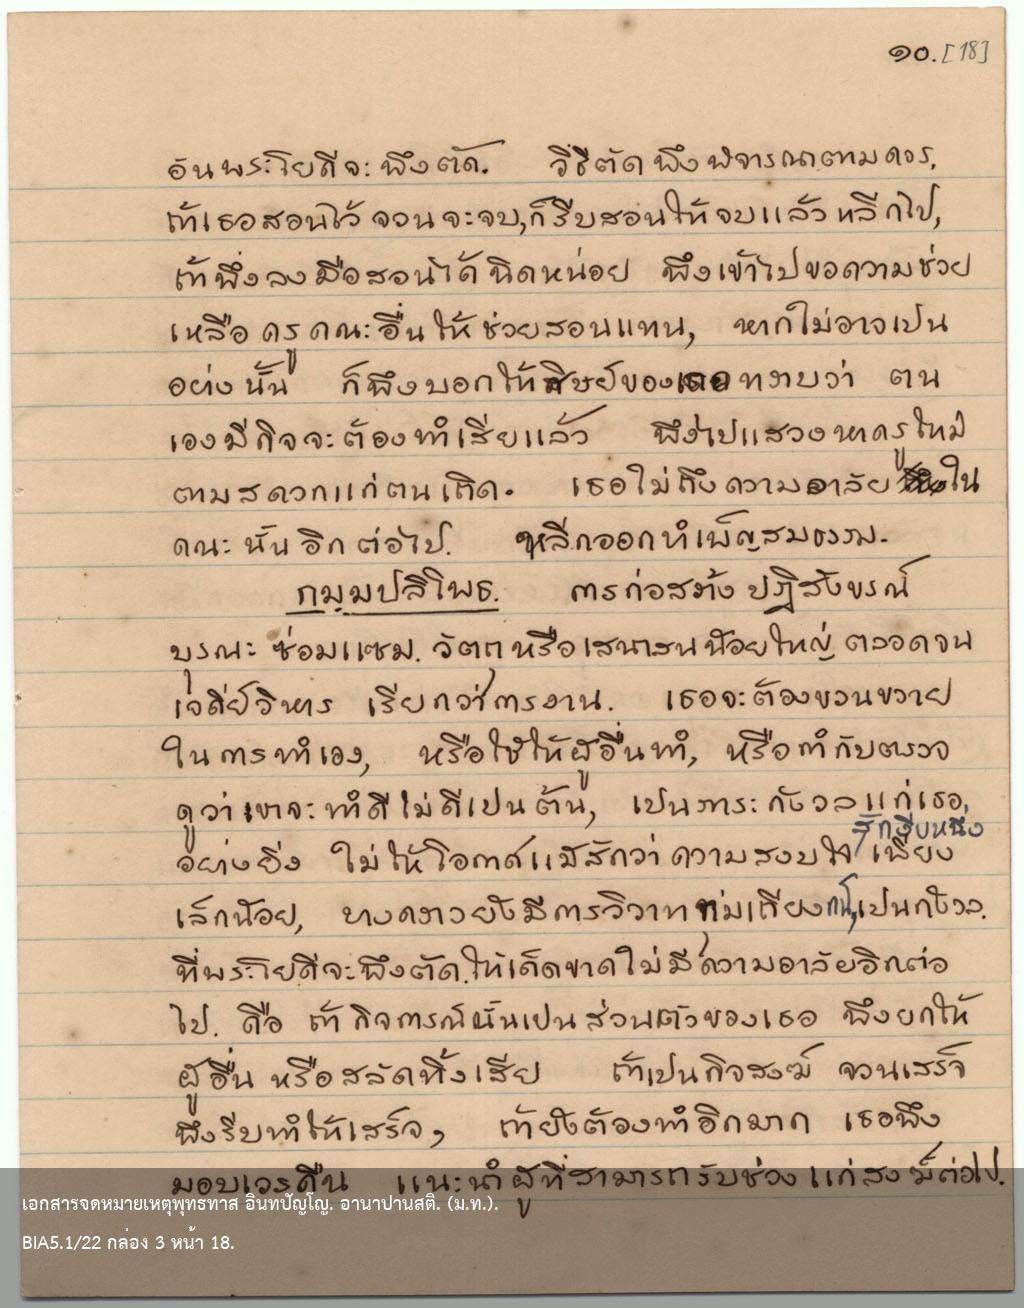 ๑๐. [18]
อันพระโยคีจะพึงตัด. วิธีตัดพึงพิจารณาตามควร,
ถ้าเธอสอนไว้จวนจะจบ,ก็รีบสอนให้จบแล้วหลีกไป,
ถ้าพึ่งลงมือสอนได้นิดหน่อย พึงเข้าไปขอความช่วย
เหลือครูคณะอื่นให้ช่วยสอนแทน, หากไม่อาจเป็น
อย่างนั้น ก็พึงบอกให้ศิษย์ของเธอทราบว่า ตน
เองมีกิจจะต้องทำเสียแล้ว พึงไปแสวงหาครูใหม่
ตามสดวกแก่ตนเถิด. เธอไม่ถึงความอาลัยใน
คณะนั้นอีกต่อไป. หลีกออกทำเพ็ญสมธรรม.
กมฺมปลิโพธ. การก่อสร้างปฏิสังขรณ์
บุรณะซ่อมแซม. วัตถุหรือเสนาสนน้อยใหญ่ ตลอดจน
เจดีย์วิหาร เรียกว่าการงาน. เธอจะต้องขวนขวาย
ในการทำเอง, หรือใช้ให้ผู้อื่นทำ, หรือกำกับตรวจ
ดูว่าเขาจะทำดีไม่ดีเป็นต้น, เป็นภาระกังวลแก่เธอ,
สักงีบหนึ่ง
อย่างยิ่ง ไม่ให้โอกาศแม้สักว่าความสงบใจเพียง
เล็กน้อย, บางคราวยังมีการวิวาททุ่มเถียงกัน,เป็นกังวล.
ที่พระโยคีจะพึงตัดให้เด็ดขาดไม่มีความอาลัยอีกต่อ
ไป. คือ ถ้ากิจการณ์นั้นเป็นส่วนตัวของเธอ พึงยกให้
ผู้อื่นหรือสลัดทิ้งเสีย ถ้าเป็นกิจสงฆ์ จวนเสร็จ
พึงรีบทำให้เสร็จ, ถ้ายังต้องทำอีกมาก เธอพึง
มอบเวรคืน แนะนำผู้ที่สามารถรับช่วงแก่สงฆ์ต่อไป.
เอกสารจดหมายเหตุพุทธทาส อินทปัญโญ. อานาปานสติ. (ม.ท.).
BIA5.1/22 กล่อง 3 หน้า 18.